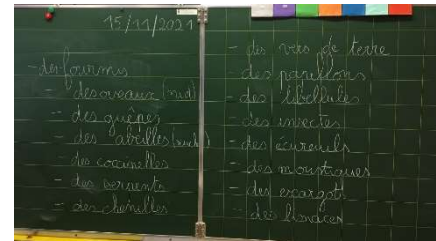 15/11/2021
- des fourmis
- des oiseaux (nid)
- des guêpes
- des abeilles (ruche)
- des coccinelles
- des serpents
- des chenilles
- des vers de terre
- des papillons
- des libellules
- des insectes
- des écureuils
- des moustiques
- des escargots
- des limaces